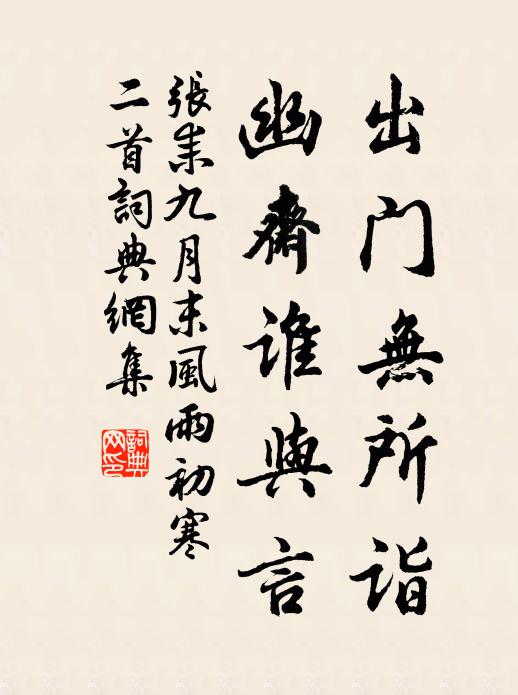 出門無所詣
幽齋誰與言
張耒九月末風雨初寒
二首詞典網集
詞典網印